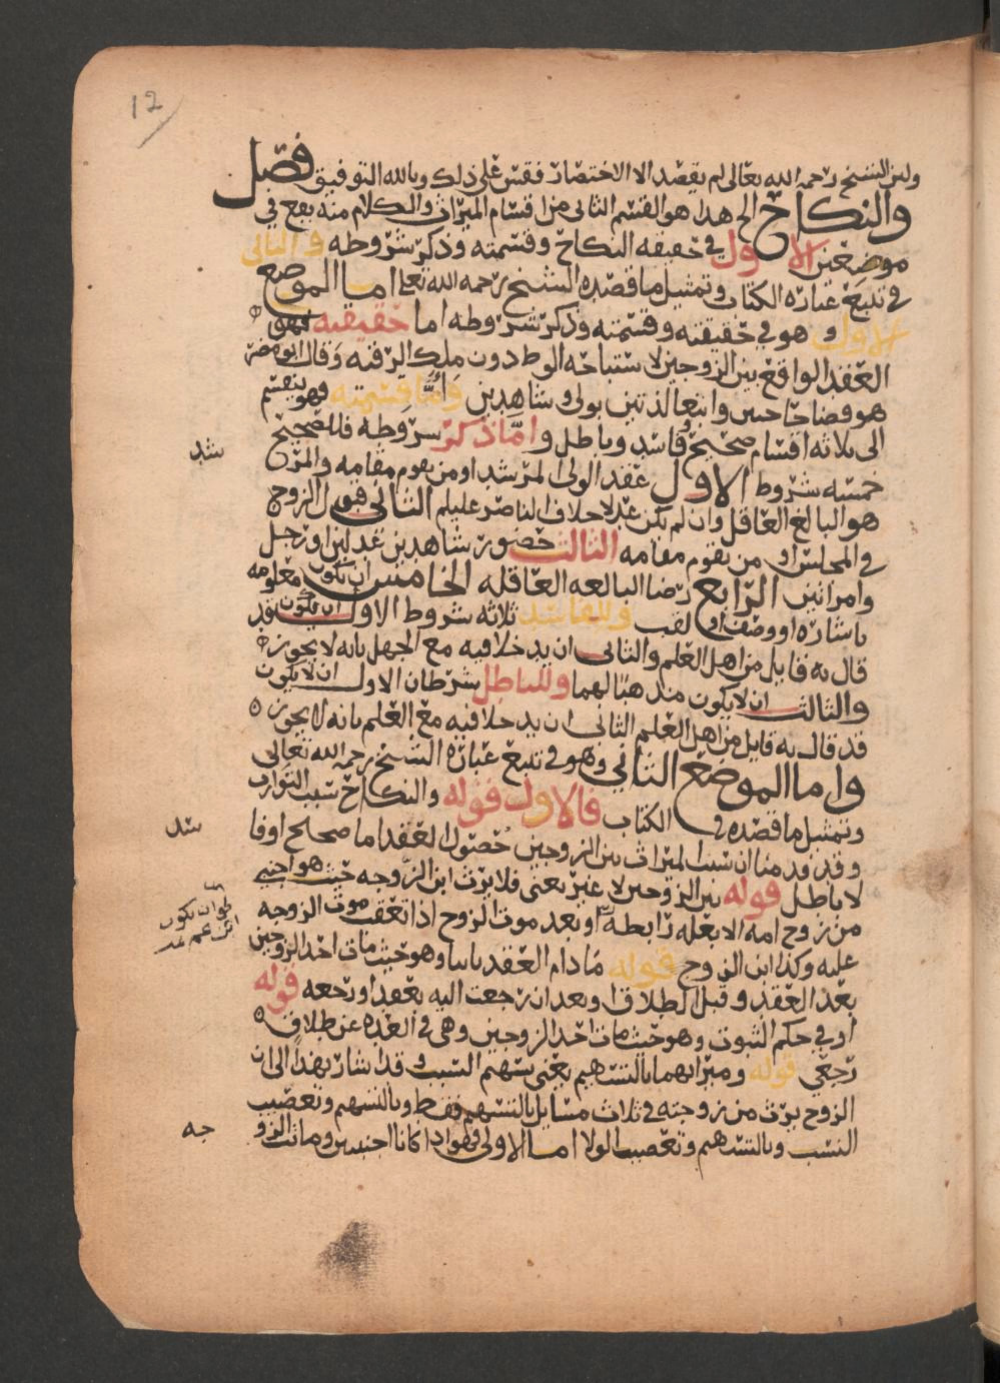 12
ولكن الشيخ رحمه الله تعالى لم يقصد الا الاختصار فقس على ذلك وبالله التوفيق فصل
والنكاح الخ هذا هو القسم الثاني من اقسام الميراث والكلام منه يقع في
موضعين الاول في حقيقه النكاح وقسمته وذكر شروطه والثاني
في تتبع عباره الكتاب وتمثيل ما قصده الشيخ رحمه الله تعلى اما الموضع
الاول وهو في حقيقته وقسمته وذكر شروطه اما حقيقته فهو
العقد الواقع بين الزوجين لاستباحه الوط دون ملك الرقبه وقال ابو مضر
هو بولي وشاهدين واما قسمته فهو ينقسم
الى ثلاثه اقسام صحيح وفاسد وباطل واما ذكر شروطه فللصحيح
خمسه شروط الاول عقد الولي المرشد او من يقوم مقامه والمرشد
هو البالغ العاقل وان لم يكن عدلا خلاف الناصر عليلم الثاني قبول الزوج
في المجلس او من يقوم مقامه الثالث حضور شاهدين عدلين او رجل
وامراتين الرابع رضا البالغه العاقله الخامس ان تكون معلومه
باشاره او وصف او لقب وللفاسد ثلاثه شروط الاول ان يكون قد
قال به قايل من اهل العلم والثاني ان يدخلا فيه مع الجهل بانه لا يجوز
والثالث ان لا يكون مذهبا لهما وللباطل شرطان الاول ان لا يكون
قد قال به قايل من اهل العلم الثاني ان يدخلا فيه مع العلم بانه لا يجوز
واما الموضع الثاني وهو في تتبع عباره الشيخ رحمه الله تعالى
وتمثيل ما قصده في الكتاب فالاول قوله والنكاح سبب التوارث
وقد قدمنا ان سبب الميراث بين الزوجين حصول العقد اما صحيح او فاسد
لا باطل قوله بين الزوجين لا غير يعني فلا يرث ابن الزوجه حيث هو اجنبي
من زوج امه الا بعله رابطه او بعد موت الزوج اذا تعقب موت الزوجه
عليه وكذا ابن الزوج قوله ما دام العقد باقيا وهو حيث مات احد الزوجين
بعد العقد وقبل الطلاق او بعد ان رجعت اليه بعقد او رجعه قوله
او في حكم الثبوت وهو حيث مات احد الزوجين وهي في العده عن طلاق
رجعي قوله وميراثهما بالتسهيم يعني بسهم السبب وقد اشار بهذا الى ان
الزوج يرث من زوجته في ثلاث مسايل بالتسهيم فقط وبالتسهيم وتعصيب
النسب وبالتسهيم وتعصيب الولا اما الاولى فهو اذا كانا اجنبيين وماتت الزو
جه